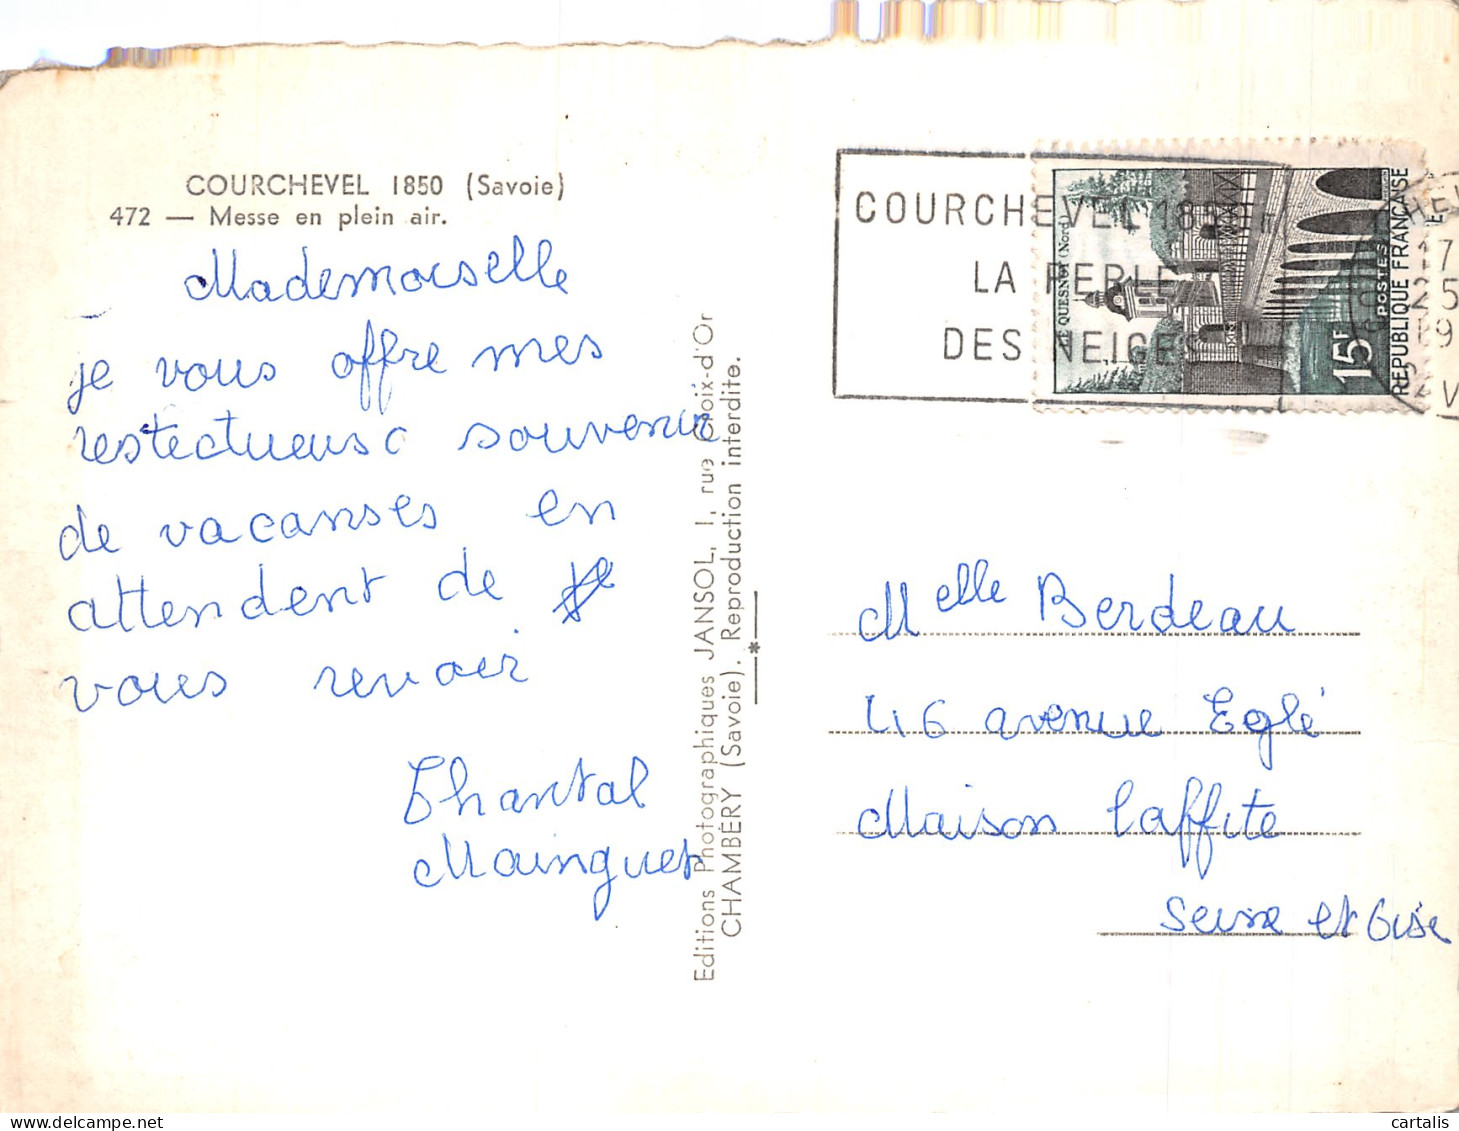 COURCHEVEL 1850 (Savoie)
472 — Messe en plein air.
Mademoiselle
je vous offre mes
restectueusc souvenir
de vacanses en
attendent de
vous revoir
Chantal
Mainguet
Editions Photographiques JANSOL, 1, rue Croix-d'Or
CHAMBÉRY (Savoie). Reproduction interdite.
COURCHEVEL 1850 m
LA PERLE
DES NEIGES
LE QUESNOY (Nord)
15F
POSTES
REPUBLIQUE FRANÇAISE
17
25
19
Melle Berdeau
46 avenue Eglé
Maison laffite
Seine et Oise
cartalis